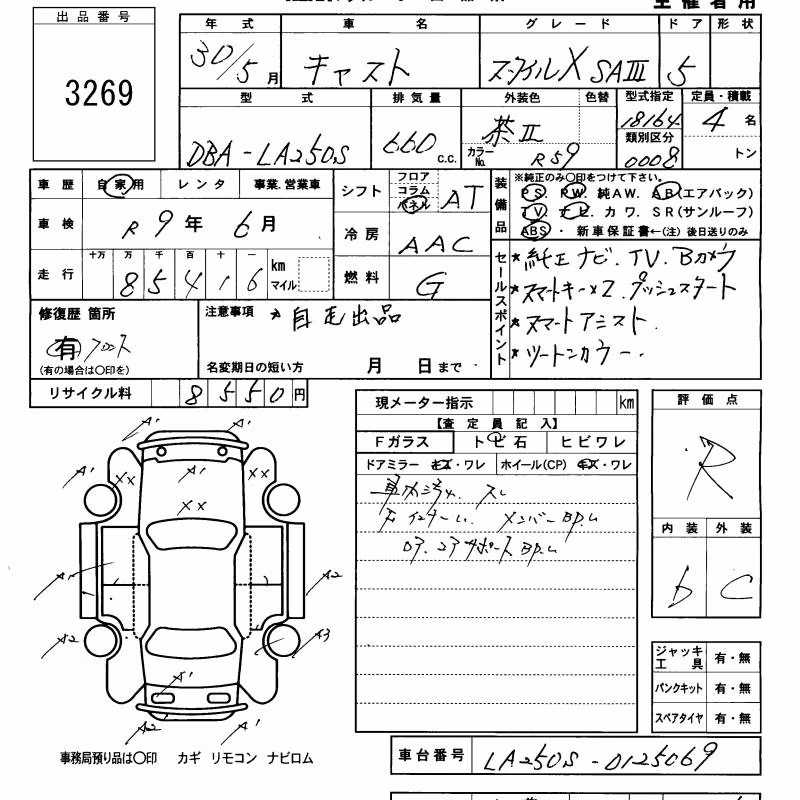 出品番号
3269
年式 車名 グレード ドア 形状
30/5月 キャスト スタイルX SAIII 5
型式 排気量 外装色 色替 型式指定 定員・積載
DBA-LA250S 660 c.c. 茶II 18164 4名
カラーNo. R59 類別区分 0008 トン
車歴 自家用 レンタ 事業.営業車
車検 R9年 6月
走行 十万 万 千 百 十 一
85416 km マイル
シフト フロア コラム パネル AT
冷房 AAC
燃料 G
装備品 ※純正のみ○印をつけて下さい。
PS. PW. 純AW. AB(エアバック)
TV. ナビ. カワ. SR(サンルーフ)
ABS・新車保証書←(注)後日送りのみ
セールスポイント
*純正ナビ.TV.Bカメラ
*スマートキー×2.プッシュスタート
*スマートアシスト.
*ツートンカラー.
修復歴 箇所
有 フロント
(有の場合は○印を)
注意事項 *自宅出品
名変期日の短い方 月 日まで
リサイクル料 8550円
現メーター指示 km
【査定員記入】
Fガラス トビ石 ヒビワレ
ドアミラー キズ・ワレ ホイール(CP) キズ・ワレ
車内汚れ. スレ
メンバー
サポート
評価点
R
内装 外装
b C
A1 A1
A1 XX A1 XX A1
XX
A1 A2
A2 A3
A1
A2 A1
ジャッキ工具 有・無
パンクキット 有・無
スペアタイヤ 有・無
事務局預り品は○印 カギ リモコン ナビロム
車台番号 LA250S-0125069